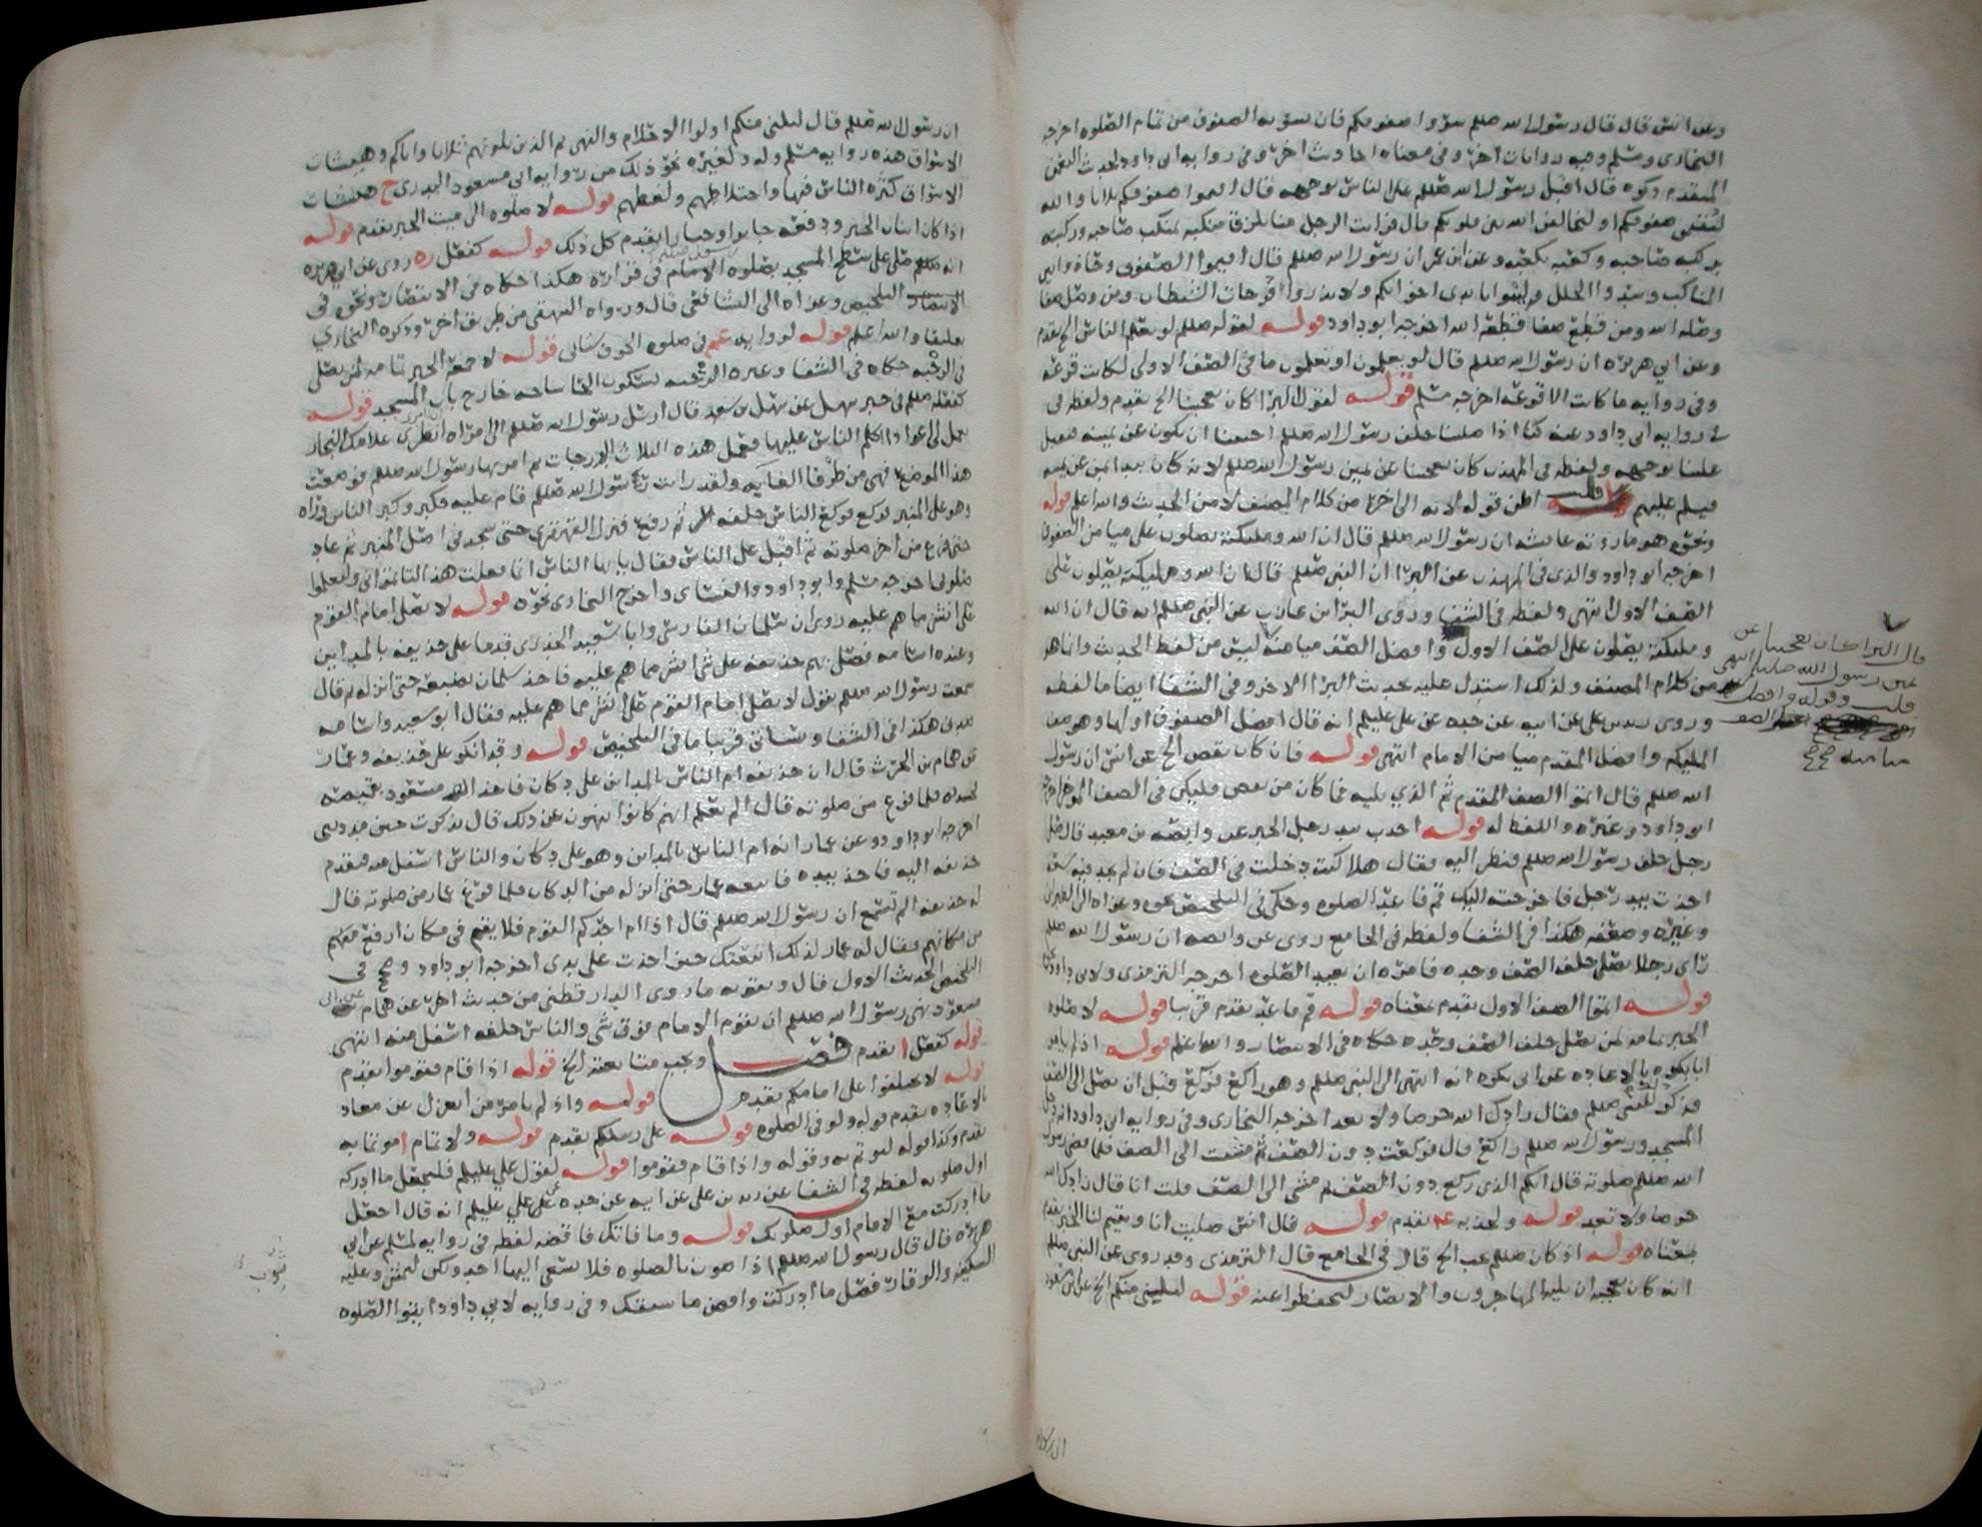 وعن انس قال قال رسول الله صلعم سووا صفوفكم فان تسويه الصفوف من تمام الصلوه اخرجه
البخارى ومسلم وفيه روايات اخر وفى معناه احاديث اخر وفى روايه ابى داود لحديث النعمن
المتقدم ذكره قال اقبل رسول الله صلعم على الناس بوجهه فقال اقيموا صفوفكم ثلاثا والله
لتقيمن صفوفكم او ليخالفن الله بين قلوبكم قال فرايت الرجل منا يلزق منكبه بمنكب صاحبه وركبته
بركبه صاحبه وكعبه بكعبه وعن ابن عمر ان رسول الله صلعم قال اقيموا الصفوف وحاذوا بين
المناكب وسدوا الخلل ولينوا بايدى اخوانكم ولا تذروا فرجات الشيطان ومن وصل صفا
وصله الله ومن قطع صفا قطعه الله اخرجه ابو داود قوله لقوله صلعم لو يعلم الناس الخ تقدم
وعن ابي هريره ان رسول الله صلعم قال لو يعلمون او تعلمون ما فى الصف الاولى لكانت قرعه
وفى روايه ما كانت الا قرعه اخرجه مسلم قوله لقول البرا كان يعجبنا الخ تقدم ولفظه فى
فى روايه ابى داود عنه كنا اذا صلينا خلف رسول الله صلعم احببنا ان نكون عن يمينه فيقبل
علينا بوجهه ولفظه فى المهذب كان يعجبنا عن يمين رسول الله صلعم لانه كان يبدا بمن عن يمينه
فيسلم عليهم قلت اظن قوله لانه الى اخره من كلام المصنف لا من الحديث والله اعلم قوله
ونحوه هو ما روته عايشه ان رسول الله صلعم قال ان الله ومليكته يصلون على ميامن الصفوف
اخرجه ابو داود والذى فى المهذب عن البرا ان النبى صلعم قال ان الله ومليكته يصلون على
الصف الاول انتهى ولفظه فى الشفا وروى البرا بن عازب عن النبى صلعم انه قال ان الله
ومليكته يصلون على الصف الاول وافضل الصف ميامنه ليس من لفظ الحديث وانما هو
من كلام المصنف ولذلك استدل عليه بحديث البرا الاخر وفى الشفا ايضا ما لفظه
وروى زيد بن على عن ابيه عن جده عن على عليلم انه قال افضل الصفوف اولها وهو صف
المليكه وافضل المقدم ميامن الامام انتهى قوله فان كان نقص الخ عن انس ان رسول
الله صلعم قال اتموا الصف المقدم ثم الذي يليه فما كان من نقص فليكن فى الصف الموخر اخرجه
ابو داود وغيره واللفظ له قوله اجذب بيد رجل الخبر عن وابصه بن معبد قال صلى
رجل خلف رسول الله صلعم فنظر اليه فقال هلا كنت دخلت فى الصف فان لم تجد فيه سعه
اخذت بيد رجل فاخرجته اليك قم فاعد الصلوه وحكى فى التلخيص نحوه وعزاه الى الطبرانى
وغيره وضعفه هكذا فى الشفا ولفظه فى الجامع روى عن وابصه ان رسول الله صلعم
راى رجلا يصلى خلف الصف وحده فامره ان يعيد الصلوه اخرجه الترمذى ولابى داود نحوه
قوله اتموا الصف الاول تقدم بمعناه قوله قم فاعد تقدم قريبا قوله لا صلوه
الخبر تمامه لمن يصلى خلف الصف وحده حكاه فى الانتصار والله اعلم قوله اذ لم يامر
ابا بكره بالاعاده عن ابى بكره انه انتهى الى النبى صلعم وهو راكع فركع قبل ان يصل الى الصف
فذكر للنبى صلعم فقال زادك الله حرصا ولا تعد اخرجه البخارى وفى روايه ابى داود انه دخل
المسجد ورسول الله صلعم راكع قال فركعت دون الصف ثم مشيت الى الصف فلما قضى رسول
الله صلعم صلوته قال ايكم الذى ركع دون الصف ثم مشى الى الصف قلت انا قال زادك الله
حرصا ولا تعد قوله ولجذبه عم تقدم قوله قال انس صليت انا ويتيم لنا الخبر تقدم
بمعناه قوله اذ كان صلعم يحب الخ قال فى الجامع قال الترمذى وقد روى عن النبى صلعم
انه كان يعجبه ان يليه المهاجرون والانصار ليحفظوا عنه قوله ليلينى منكم الخ عن ابن مسعود
قال البرا كان يعجبنا عن
يمين رسول الله صلعم انتهى
قلت وقوله وافضل
الصف
ميامنه صح صح
ان رسول
ان رسول الله صلعم قال ليلنى منكم اولوا الاحلام والنهى ثم الذين يلونهم ثلاثا واياكم وهيشات
الاسواق هذه روايه مسلم وله ولغيره نحو ذلك من روايه ابى مسعود البدرى ح هيشات
الاسواق كثره الناس فيها واختلاطهم ولغطهم قوله لا صلوه الى ميت الخبر تقدم قوله
اذا كان اثنان الخبر ودفعه جابرا وجبارا تقدم كل ذلك قوله كفعل ره روى عن ابى هريره
انه صلى على سطح المسجد بصلوه الامام فى قراره هكذا حكاه فى الانتصار ونحوه فى
التلخيص وعزاه الى الشافعى قال ورواه البيهقى من طريق اخر وذكره البخاري
تعليقا والله اعلم قوله لروايه عم فى صلوه الخوف ستاتى قوله لا جمعه الخبر تمامه لمن يصلى
فى الرحبه حكاه فى الشفا وغيره الرحبه بسكون الحا ساحه خارج باب المسجد قوله
كفعله صلعم فى خبر سهل عن سهل بن سعد قال ارسل رسول الله صلعم الى امراه انظرى غلامك النجار
يعمل لى اعوادا اكلم الناس عليها فعمل هذه الثلاث الدرجات ثم امر بها رسول الله صلعم فوضعت
هذا الموضع فهى من طرفا الغابه ولقد رايت رسول الله صلعم قام عليه فكبر وكبر الناس وراه
وهو على المنبر فركع فركع الناس خلفه ثم رفع فنزل القهقرى حتى سجد فى اصل المنبر ثم عاد
حتى فرغ من اخر صلوته ثم اقبل على الناس فقال يايها الناس انما فعلت هذا لتاتموا بى ولتعلموا
صلوتى اخرجه مسلم وابو داود والنسائى واخرج البخارى نحوه قوله لا يصلى امام القوم
على انشز مما هم عليه روى ان سلمان الفارسى وابا سعيد الخدرى قدما على حذيفه بالمداين
وعنده اسامه فصلى بهم حذيفه على شى انشز مما هم عليه فاخذ سلمان بضبعه حتى انزله قال
سمعت رسول الله صلعم يقول لا يصلى امام القوم على انشز مما هم عليه فقال ابو سعيد واسامه
صدق هكذا فى الشفا وسياتى قريبا ما فى التلخيص قوله وقد انكر على حذيفه وعمار
عن همام بن الحرث قال ان حذيفه ام الناس بالمداين على دكان فاخذ ابو مسعود بقميصه
فجبذه فلما فرغ من صلوته قال الم تعلم انهم كانوا ينهون عن ذلك قال بلى ذكرت حين مددتنى
اخرجه ابو داود وعن عمار انه ام الناس بالمداين وهو على دكان والناس اسفل منه فتقدم
حذيفه اليه فاخذ بيده فاتبعه عمار حتى انزله من الدكان فلما فرغ عمار من صلوته قال
له حذيفه الم تسمع ان رسول الله صلعم قال اذا ام احدكم القوم فلا يقم فى مكان ارفع
من مكانهم فقال له عمار لذلك اتبعتك حين اخذت على يدى اخرجه ابو داود وصحح فى
التلخيص الحديث الاول قال ويقويه ما روى الدارقطنى من حديث اخر عن همام عن ابى
مسعود نهى رسول الله صلعم ان يقوم الامام فوق شى والناس خلفه اسفل منه انتهى
قوله كفعل تقدم فصل ويجب متابعته الخ قوله اذا قام فقوموا تقدم
قوله لا تختلفوا على امامكم تقدم قوله واذ لم يامر من انعزل عن معاذ
بالاعاده تقدم قوله ولو فى الصلوه قوله على رسلكم تقدم قوله ولا تمام امو تمابه
تقدم وكذا قوله ليوتم به وقوله واذا قام فقوموا قوله لقول علي عليلم فليجعل ما ادركه
اول صلوته لفظه فى الشفا عن زيد بن على عن ابيه عن جده عن علي عليلم انه قال اجعل
ما ادركت مع الامام اول صلوتك قوله وما فاتك فاقضه لفظه فى روايه لمسلم عن ابي
هريره قال قال رسول الله صلعم اذا ثوب بالصلوه فلا يسعى اليها احدكم ولكن ليمش وعليه
السكينه والوقار فصل ما ادركت واقض ما سبقك وفى روايه لابي داود ايتوا الصلوه
ثوب